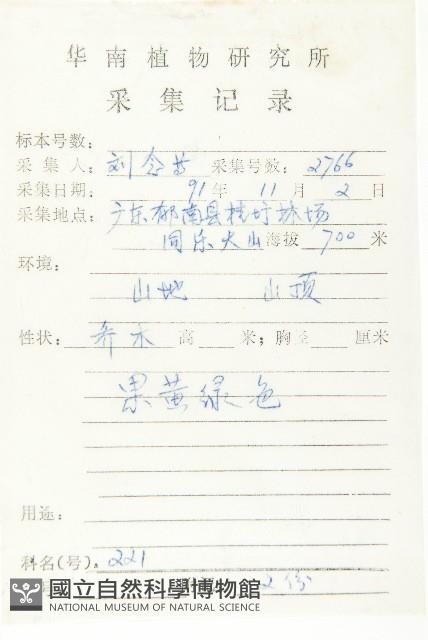 华南植物研究所
采集记录
标本号数：
采集人：刘念 采集号数：2766
采集日期： 91年 11月 2日
采集地点：广东郁南县桂圩林场
同乐大山海拔 700 米
环境：
山地 山顶
性状：乔木 高 米；胸径 厘米
果黄绿色
用途：
科名(号)．221
2份
國立自然科學博物館
NATIONAL MUSEUM OF NATURAL SCIENCE